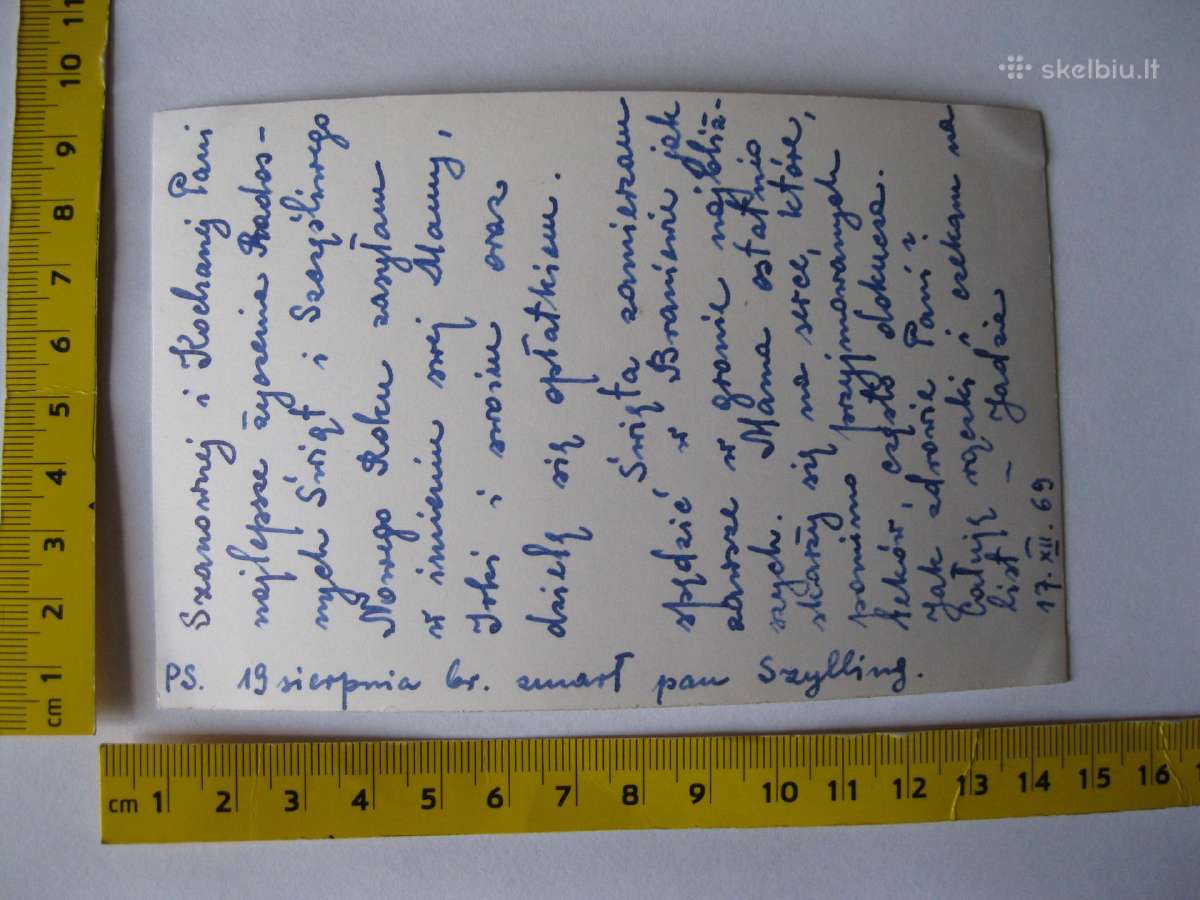 Szanownej i Kochanej Pani
najlepsze życzenia Rados-
nych Świąt i Szczęśliwego
Nowego Roku zasyłam
w imieniu swej Mamy,
Irki i swoim oraz
dzielę się opłatkiem.
Święta zamierzam
spędzić w Braniewie jak
zawsze w gronie najbliż-
szych. Mama ostatnio
skarży się na serce, które,
pomimo przyjmowanych
leków, często dokucza.
Jak zdrowie Pani?
Całuję rączki i czekam na
list – Jadzia
17.XII.69
PS. 19 sierpnia br. zmarł pan Szylling.
skelbiu.lt
cm 1 2 3 4 5 6 7 8 9 10 11
cm 1 2 3 4 5 6 7 8 9 10 11 12 13 14 15 16